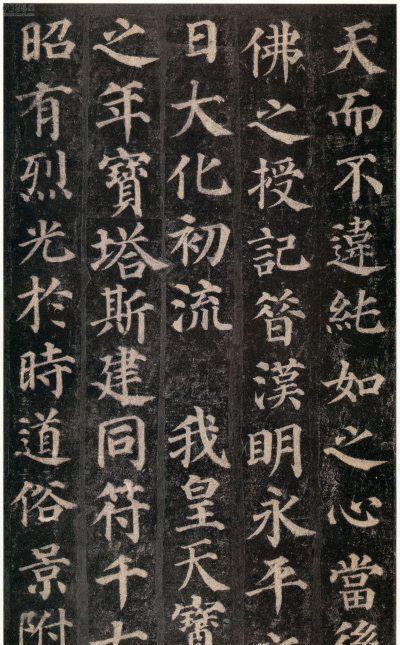 天而不違純如之心當後
佛之授記昔漢明永平
日大化初流　我皇天寶
之年寶塔斯建同符千
昭有烈光於時道俗景附